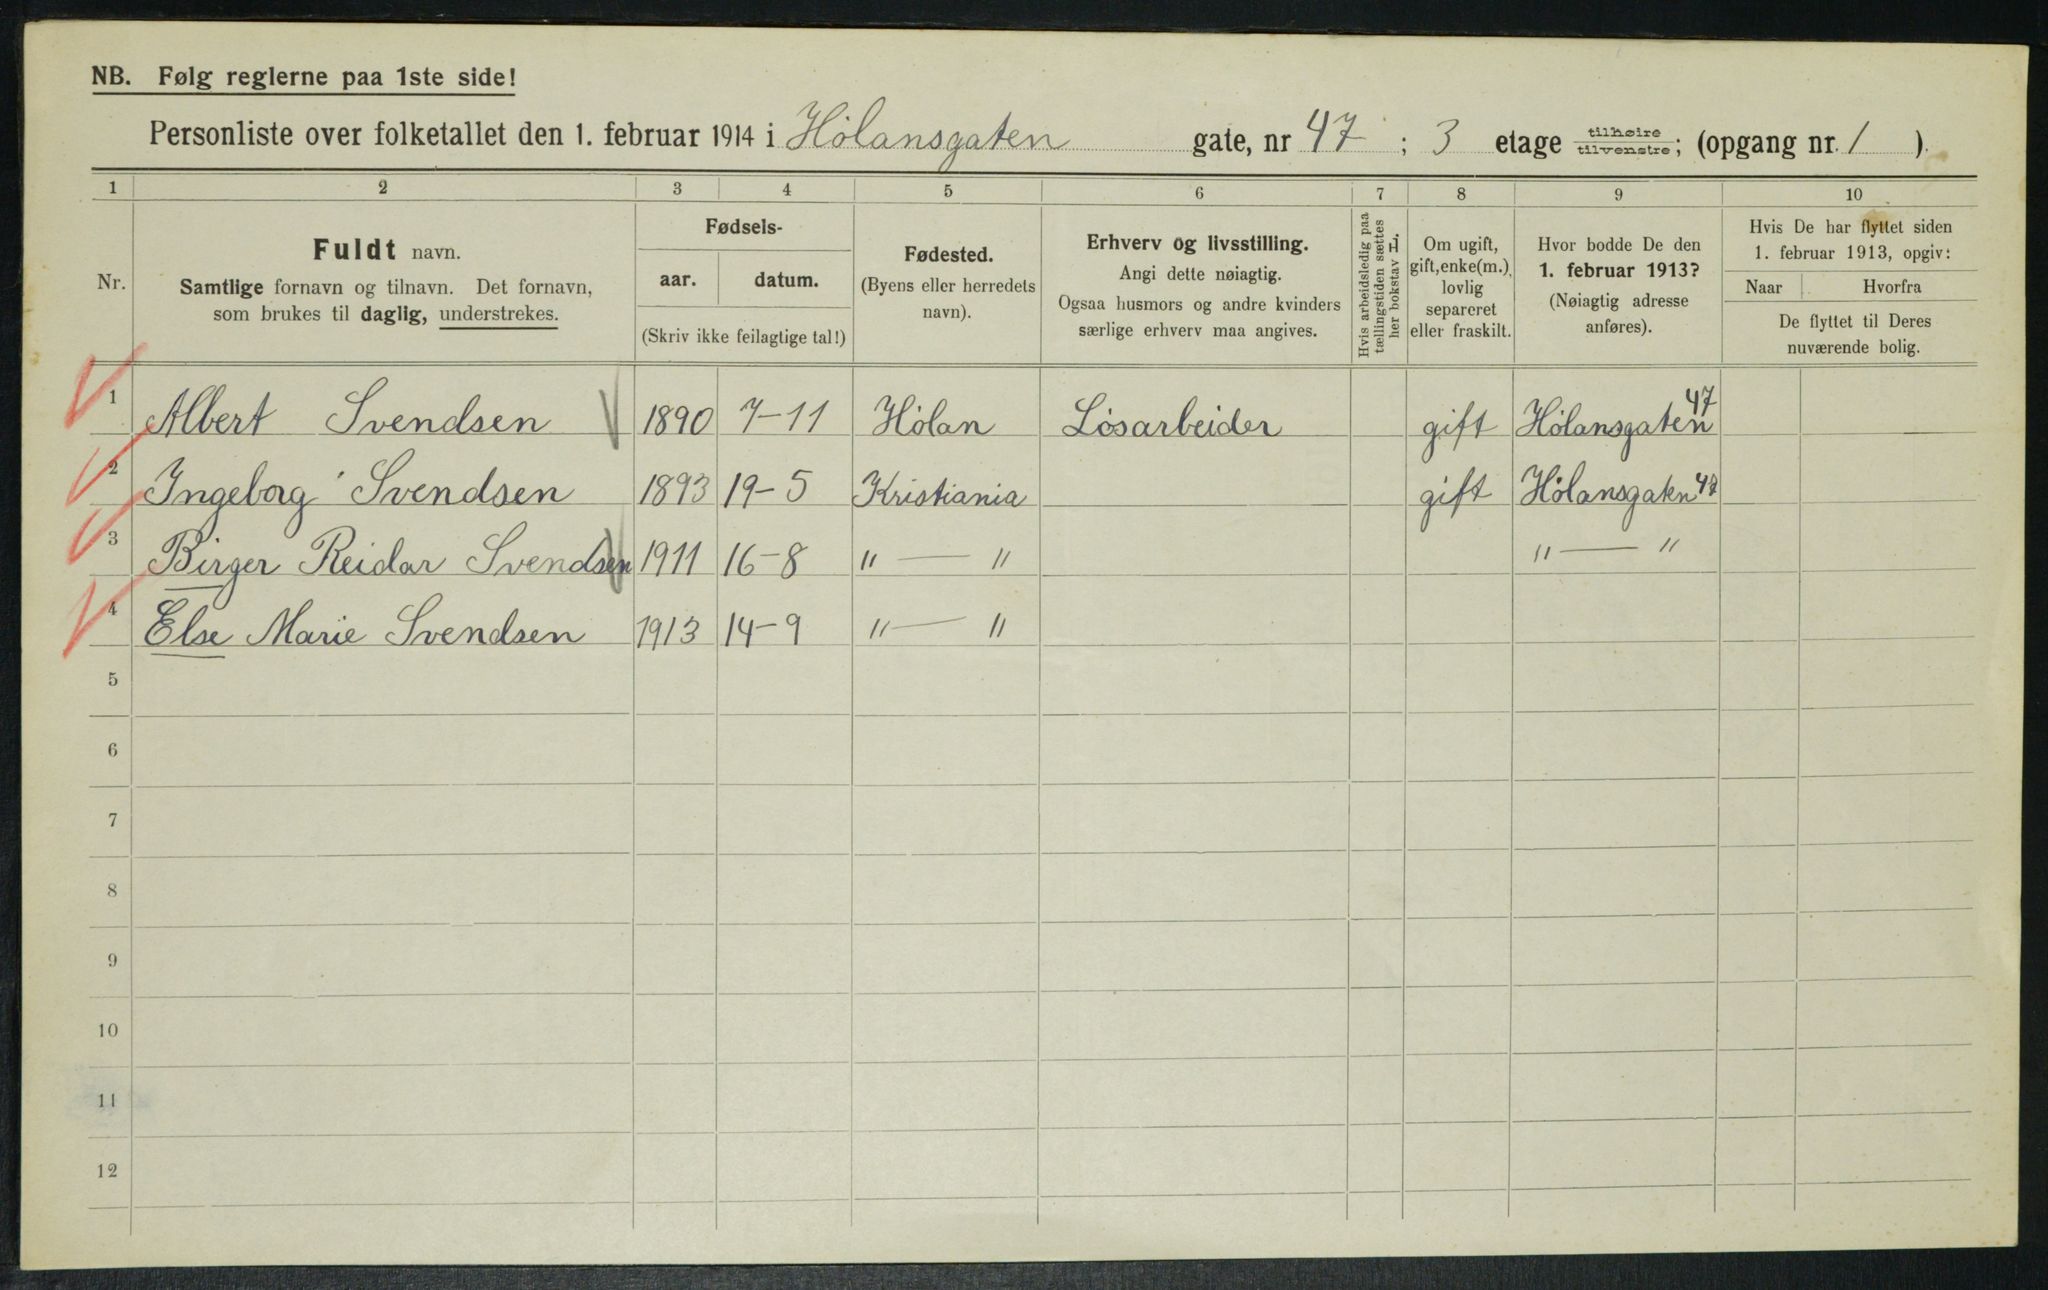 NB. Følg reglerne paa 1ste side!
Personliste over folketallet den 1. februar 1914 i Hølansgaten gate, nr 47; 3 etage tilhøire tilvenstre; (opgang nr. 1 ).
1 2 3 4 5 6 7 8 9 10
Nr.
Fuldt navn.
Samtlige fornavn og tilnavn. Det fornavn,
som brukes til daglig, understrekes.
Fødsels-
aar. datum.
(Skriv ikke feilagtige tal!)
Fødested.
(Byens eller herredets
navn).
Erhverv og livsstilling.
Angi dette nøiagtig.
Ogsaa husmors og andre kvinders
særlige erhverv maa angives.
Hvis arbeidsledig paa
tællingstiden sættes
her bokstav L.
Om ugift,
gift, enke(m.),
lovlig
separeret
eller fraskilt.
Hvor bodde De den
1. februar 1913?
(Nøiagtig adresse
anføres).
Hvis De har flyttet siden
1. februar 1913, opgiv:
Naar Hvorfra
De flyttet til Deres
nuværende bolig.
1 Albert Svendsen 1890 7-11 Hølan Løsarbeider gift Hølansgaten 47
2 Ingeborg Svendsen 1893 19-5 Kristiania gift Hølansgaten 47
3 Birger Reidar Svendsen 1911 16-8 " — " " — "
4 Else Marie Svendsen 1913 14-9 " — "
5
6
7
8
9
10
11
12